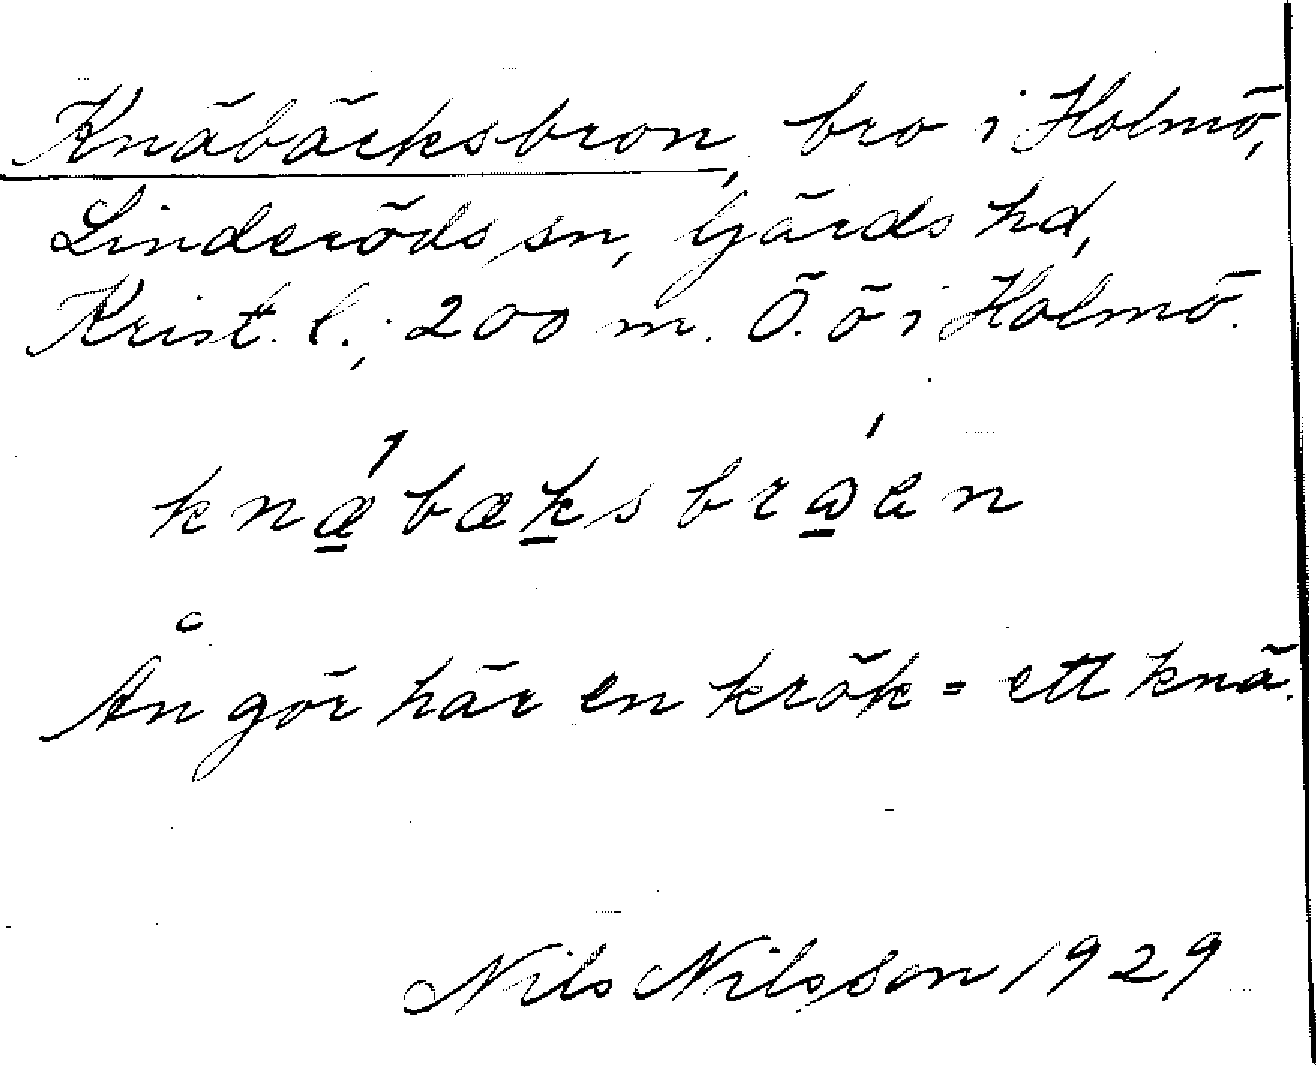 Knäbäcksbron, bro i Holmö,
Linderöds sn, Gärds hd,
Krist. l.; 200 m. Ö. ö i Holmö.
knǽbæksbrɷ́en
Ån gör här en krök = ett knä.
Nils Nilsson 1929